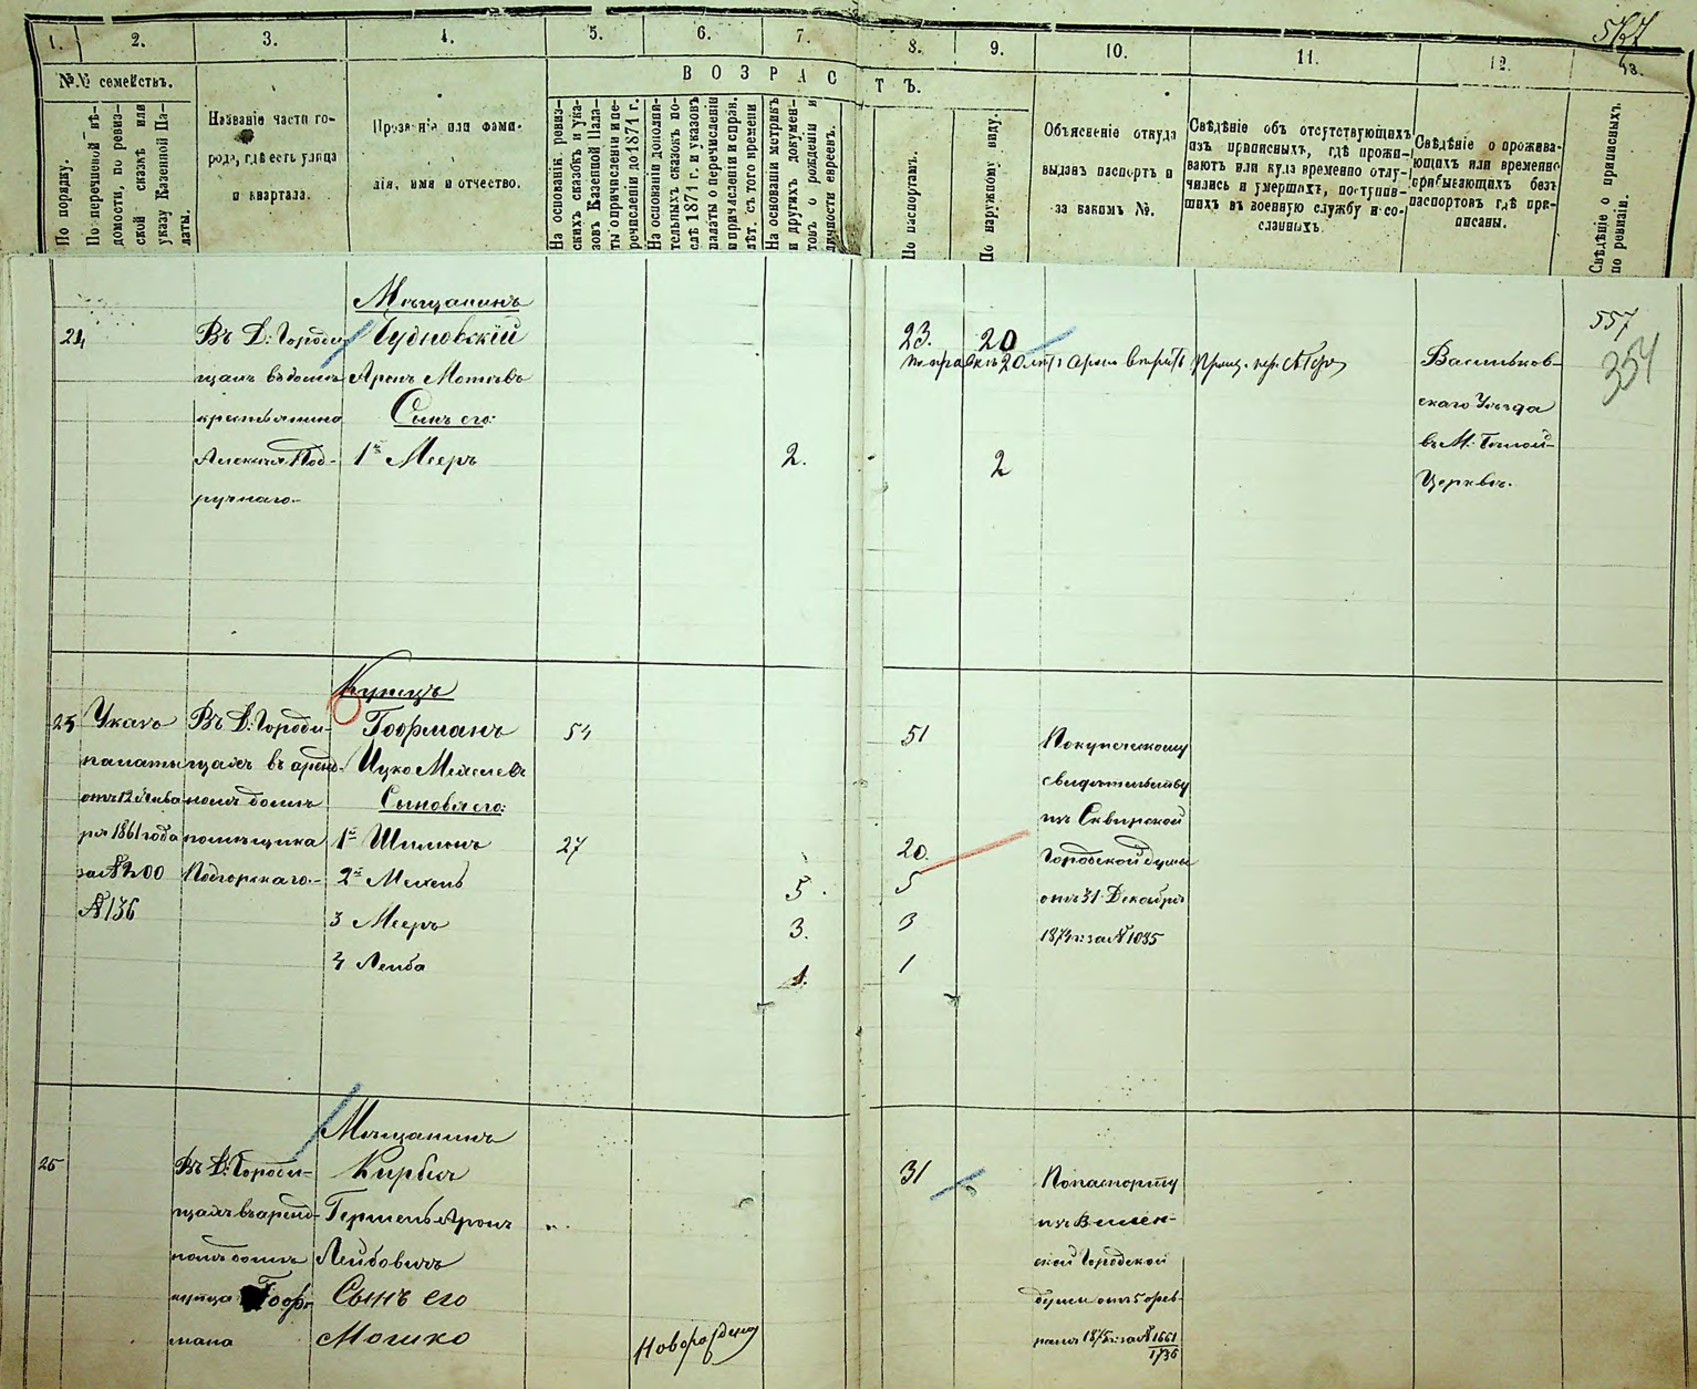 577
1. 2. 3. 4. 5. 6. 7. 8. 9. 10. 11. 12. 13.
№№ семействъ.
По порядку.
По перечневой вѣ-
домости, по ревиз-
ской сказкѣ или
указу Казенной Па-
латы.
Названіе части го-
рода, гдѣ есть улица
и квартала.
Прозваніе или фами-
лія, имя и отчество.
ВОЗРАСТЪ.
На основаніи ревиз-
скихъ сказокъ и ука-
зовъ Казенной Пала-
ты о причисленіи и пе-
речисленіи до 1871 г.
На основаніи дополни-
тельныхъ сказокъ по-
слѣ 1871 г. и указовъ
палаты о перечисленіи
и причисленіи и справ.
лѣт. съ того времени
На основаніи метрикъ
и другихъ докумен-
товъ о рожденіи и
личности евреевъ.
По паспортамъ.
По наружному виду.
Объясненіе откуда
выданъ паспортъ и
за какимъ №.
Свѣдѣніе объ отсутствующихъ
изъ приписныхъ, гдѣ прожи-
ваютъ или куда временно отлу-
чились и умершихъ, поступив-
шихъ въ военную службу и со-
сланныхъ.
Свѣдѣніе о прожива-
ющихъ или временно
прибывающихъ безъ
паспортовъ гдѣ при-
писаны.
Свѣдѣніе о приписныхъ
по ревизіи.
24
Въ Д: Городи
щахъ въ домѣ
крестьянина
Алексѣя Под-
ручнаго.
Мѣщанинъ
Чудновскій
Аронъ Мошковъ
Сынъ его:
1й Мееръ
2.
23. 20
2
Васильков-
скаго Уѣзда
въ М. Бѣлой-
Церкви.
557
354
25
Указъ
палаты
отъ 12 Января
1861 года
за № 200
№ 136
Въ Д: Городи-
щахъ въ аренд-
номъ домѣ
помѣщика
Подгорскаго.
Купецъ
Гофманъ
Ицко Мехелевъ
Сыновья его:
1й Шимонъ
2й Мехель
3 Мееръ
4 Лейба
51
27
5.
3.
1.
51
20.
5
3
1
По купеческому
свидѣтельству
изъ Сквирской
Городской думы
отъ 31 Декабря
1874 г: за № 1085
26
Въ Д: Городи-
щахъ въ аренд-
номъ домѣ
купца Гоф-
мана
Мѣщанинъ
Кирбич
Гершель Аронъ
Лейбовичъ
Сынъ его
Мошко
31
По паспорту
ской Городской
думы отъ 5 Фев-
раля 1875 г: за № 1661
1736